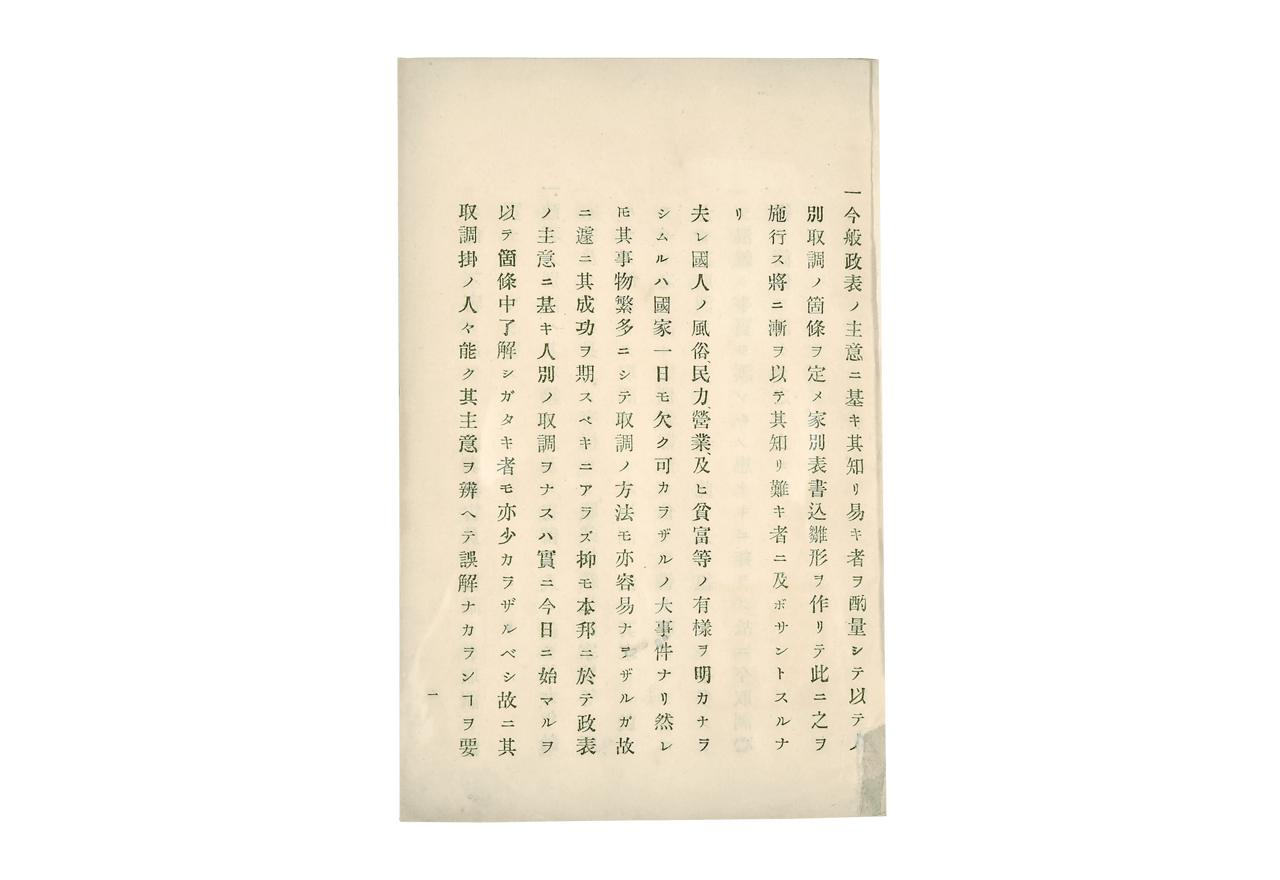 一今般政表ノ主意ニ基キ其知リ易キ者ヲ酌量シテ以テ人
別取調ノ箇條ヲ定メ家別表書込雛形ヲ作リテ此ニ之ヲ
施行ス將ニ漸ヲ以テ其知リ難キ者ニ及ボサントスルナ
リ
夫レ國人ノ風俗、民力、營業、及ヒ貧富等ノ有樣ヲ明カナラ
シムルハ國家一日モ欠ク可カラザルノ大事件ナリ然レ
𪜈其事物繁多ニシテ取調ノ方法モ亦容易ナラザルガ故
ニ遽ニ其成功ヲ期スベキニアラズ抑モ本邦ニ於テ政表
ノ主意ニ基キ人別ノ取調ヲナスハ實ニ今日ニ始マルヲ
以テ箇條中了解シガタキ者モ亦少カラザルベシ故ニ其
取調掛ノ人々能ク其主意ヲ辨ヘテ誤解ナカランヿヲ要
一